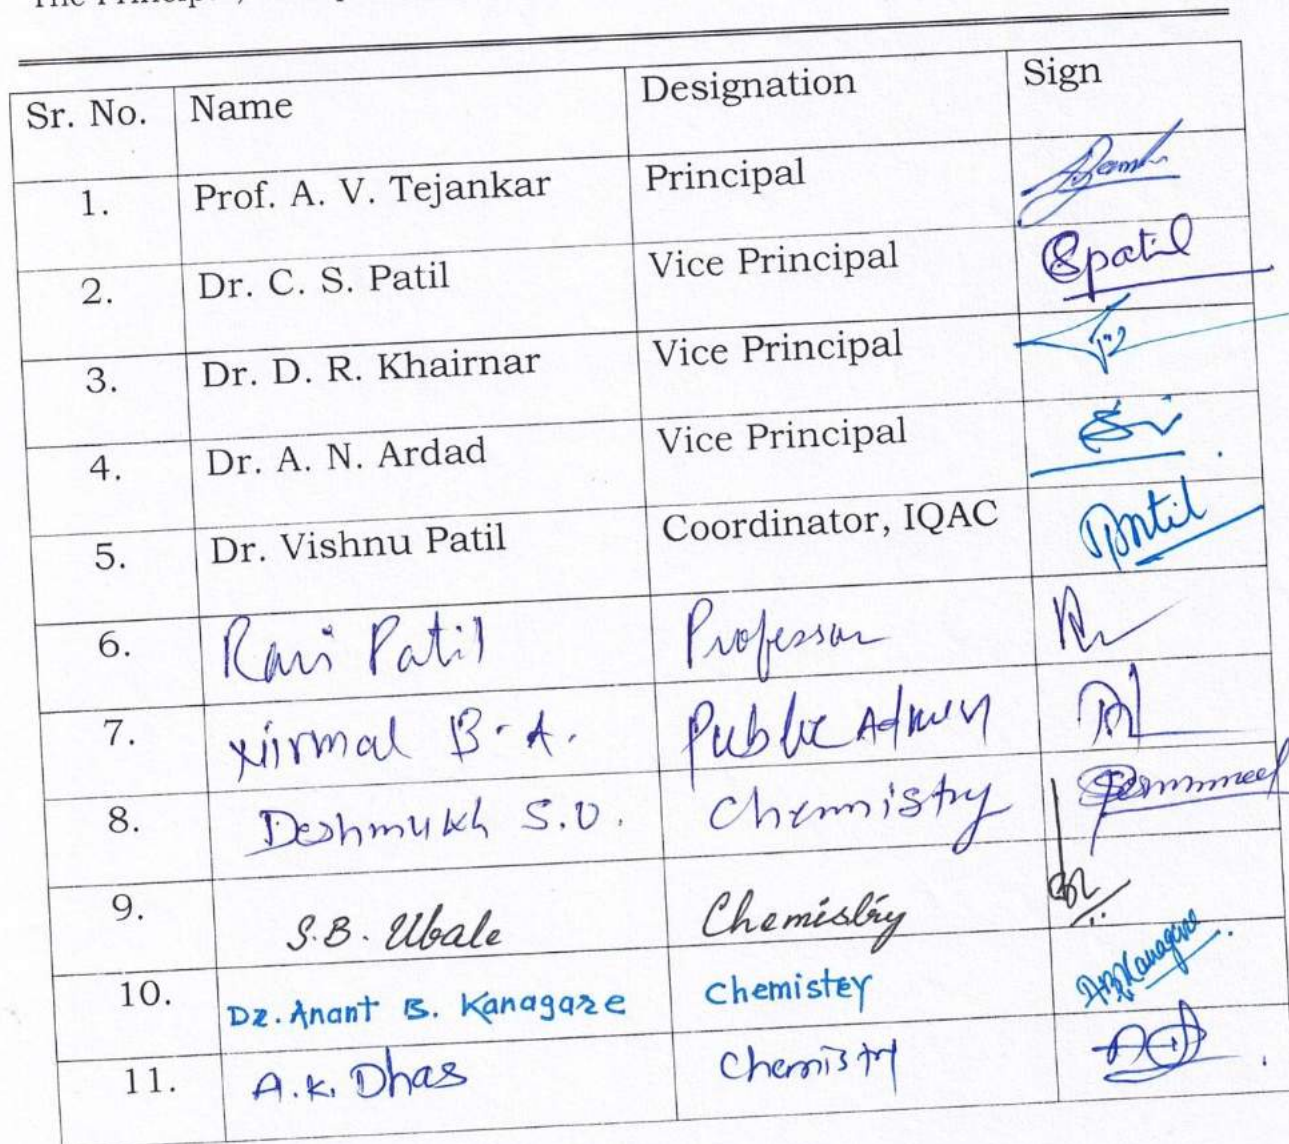 Sr. No. Name Designation Sign
1. Prof. A. V. Tejankar Principal
2. Dr. C. S. Patil Vice Principal Spatil
3. Dr. D. R. Khairnar Vice Principal
4. Dr. A. N. Ardad Vice Principal
5. Dr. Vishnu Patil Coordinator, IQAC Patil
6. Ravi Patil Professor
7. Nirmal B. A. Public Admin
8. Deshmukh S.U. Chemistry
9. S.B. Ubale Chemistry
10. Dr. Anant B. Kanagare Chemistry ABKanagare
11. A.K. Dhas Chemistry